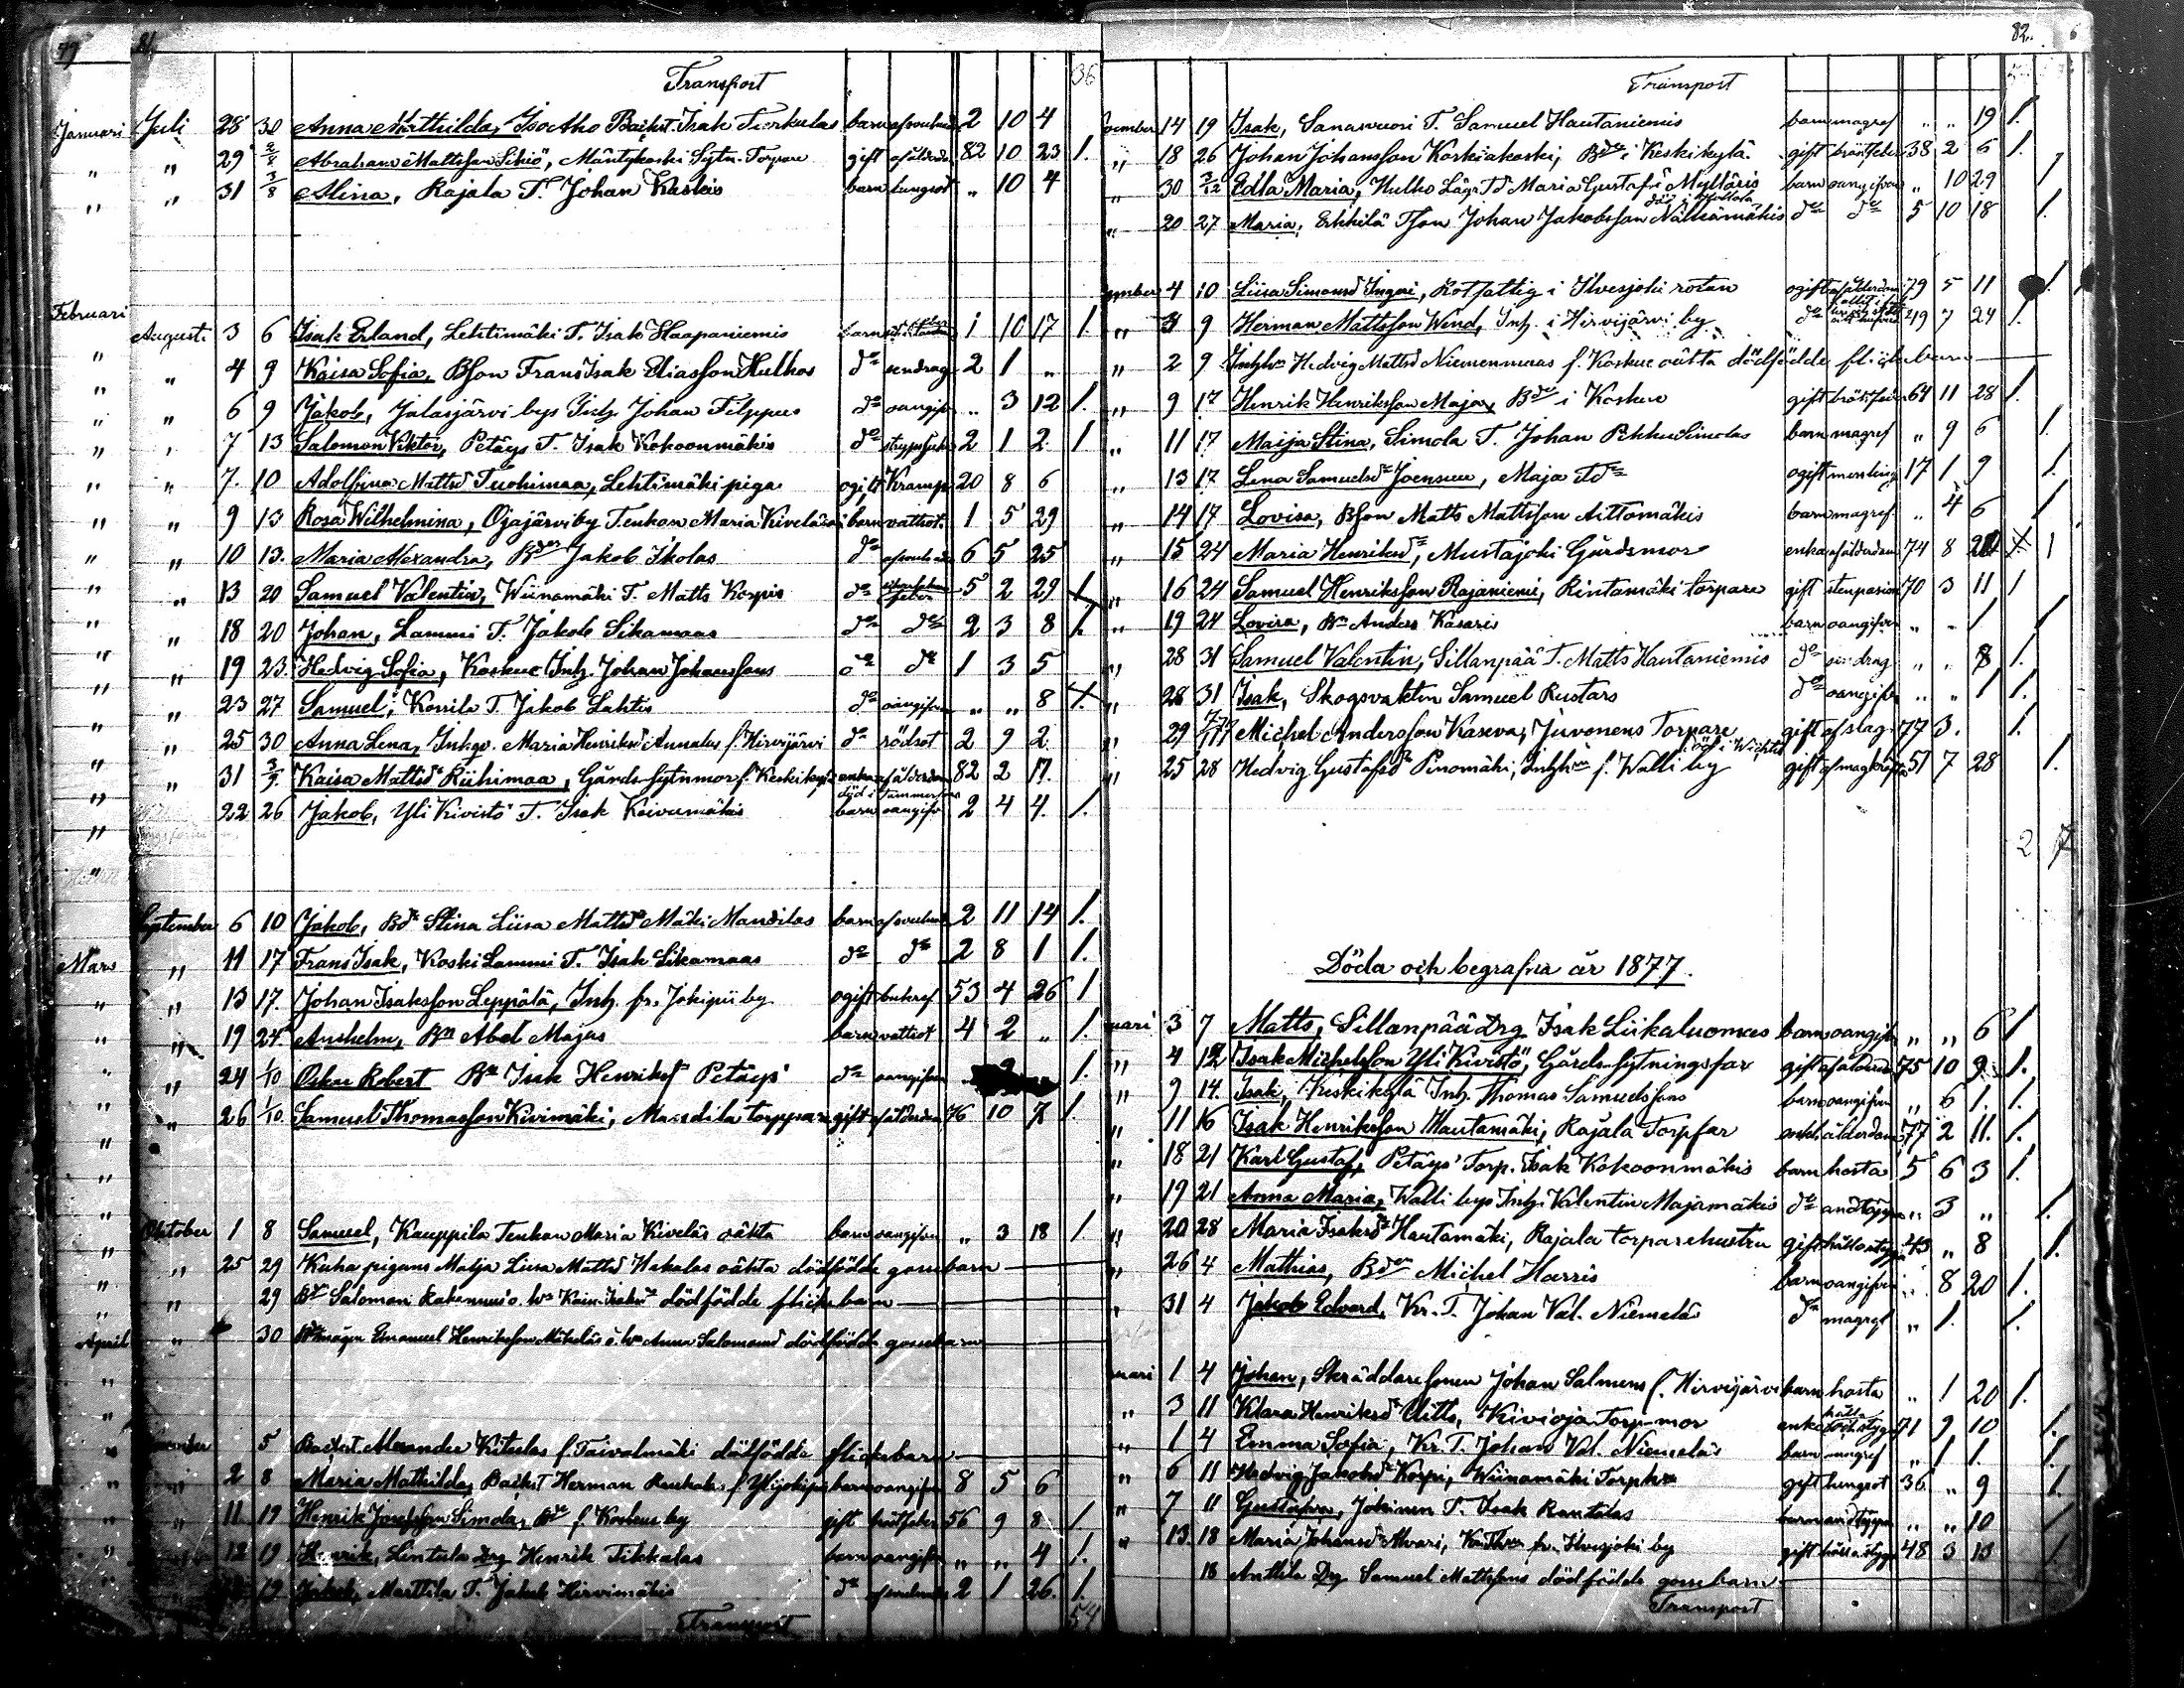 79 81.
Transport 36
Januari Juli 28 30 Anna Mathilda, Isoaho Backst. Isak Tierkulas barn 2 10 4
" " 29 2/8 Abraham Mattsson Sihiö, Mäntykoski Sytn. Torpare gift af ålderdom 82 10 23 1.
" " 31 3/8 Alina, Rajala T. Johan Keskis barn lungsot " 10 4
Februari
August. 3 6 Isak Erland, Lehtimäki T. Isak Haapaniemis barn 1 10 17 1
" " 4 9 Kaisa Sofia, Bson Frans Isak Eliasson Hulkos do sendrag 2 1 "
" " 6 9 Jakob, Jalasjärvi bys Inh. Johan Filppus do oangifv. " 3 12 1.
" " 7 13 Salomon Viktor, Petäys T. Isak Kokoonmäkis do strypsjuka 2 1 2 1
" " 7 10 Adolfina Mattsd Tuohimaa, Lehtimäki piga ogift Kramp 20 8 6
" " 9 13 Rosa Wilhelmina, Ojajärvi by Tenkan Maria Kiveläs barn vattsot. 1 5 29
" " 10 13. Maria Alexandra, Bdes Jakob Ikolas do 6 5 25
" " 13 20 Samuel Valentin, Wiinamäki T. Matts Korpis do feber 5 2 29 1
" " 18 20 Johan, Lammi T. Jakob Sikamaas do do 2 3 8 1.
" " 19 23. Hedvig Sofia, Koskue Inh. Johan Johanssons do do 1 3 5
" " 23 27 Samuel, Konila T. Jakob Lahtis do oangifven " " 8
" " 25 30 Anna Lena, Inhqv. Maria Henriksd Annalas f. Hirvijärvi do rödsot 2 9 2
" " 31 3/9. Kaisa Mattsd Riihimaa, Gårds Sytnmor f. Keskikylä enka af ålderdom 82 2 17.
död i Tammerfors
22 26 Jakob, Yli Kivistö T. Isak Koivumäkis barn oangifv. 2 4 4. 1.
September 6 10 Jakob, Bdr Stina Liisa Mattsd Mäki Mandilas barn 2 11 14 1.
Mars " 11 17 Frans Isak, Koski Lammi T. Isak Sikamaas do do 2 8 1 1.
" " 13 17. Johan Isaksson Leppälä, Inh. fr. Jokipii by ogift bukref 53 4 26 1
" " 19 24. Anshelm, Bn Abel Majas barn vattsot 4 2 " 1.
" " 24 1/10 Oskar Robert Bn Isak Henrikss Petäys do oangifven 1.
" " 26 1/10. Samuel Thomasson Kivimäki, Mandila torppare gift af ålderdom 76 10 7 1.
Oktober 1 8 Samuel, Kauppila Tenkan Maria Kiveläs oäkta barn oangifven " 3 18 1
" 25 29 Kuha pigans Maija Liisa Mattsd Hakalas oäkta dödfödde gossebarn
" 29 Salomon dödfödde flickebarn
April " 30 Emanuel Henriksson Mäkeläs o. hn Anna Salomonsd dödfödde gossebarn
5 Backst. Alexander Kitulas f. Taivalmäki dödfödde flickebarn
2 8 Maria Mathilda, Backst Herman Raukalas f. Ylijokipii barn oangifven 8 5 6
11 19 Henrik Josefsson Simola, Bde f. Koskue by gift bröstfeber 56 9 8 1
12 19 Henrik, Lintula Drg Henrik Tikkalas barn oangifven " " 4 1.
19 Jakob, Marttila T. Jakob Hirvimäkis do 2 1 26. 1.
Transport 54
82.
Transport
ovember 14 19 Isak, Sanasvuori T. Samuel Hautaniemis barn magref " " 19 1.
" 18 26 Johan Johansson Koskiakoski, Bde i Keskikylä gift bröstfeber 38 2 6 1.
" 30 3/12 Edla Maria, Hulko Lägs Td Maria Gustafsd Mylläris barn oangifven " 10 29 1
" 20 27 Maria, Erkkilä Tson Johan Jakobsson Nälkämäkis do do 5 10 18 1.
ember 4 10 Liisa Simonsd Ingvi, Rotfattig i Ilvesjoki rotan ogift af ålderdom 79 5 11 1.
" 3 9 Herman Mattsson Wind, Inh. i Hirvijärvi by do 49 7 24 1.
" 2 9 Inhyshn Hedvig Mattsd Niemenmaas f. Koskue oäkta dödfödde flickebarn
" 9 17 Henrik Henriksson Maja, Bde i Koskue gift bröstfeber 64 11 28 1.
" 11 17 Maija Stina, Simola T. Johan Pekku Simolas barn magref " 9 6 1.
" 13 17 Lena Samuelsd Joensuu, Maja Tdr ogift messling 17 1 9 1.
" 14 17 Lovisa, Bson Matts Mattsson Aittomäkis barn magref. " 4 6 1
" 15 24 Maria Henriksd, Mustajoki Gårdsmor enka af ålderdom 74 8 1
" 16 24 Samuel Henriksson Rajaniemi, Rintamäki torpare gift stenpasion 70 3 11 1
" 19 24 Lovisa, Bn Anders Kasaris barn oangifven " " 1 1
" 28 31 Samuel Valentin, Sillanpää T. Matts Hautaniemis do sendrag " " 8 1.
" 28 31 Isak, Skogsvaktin Samuel Rustars do oangifv " " 1 1.
" 29 Michel Andersson Kaseva, Juvonens Torpare gift af slag 77 3. 1.
" 25 28 Hedvig Gustafsd Pinomäki, Inhyshn f. Walli by död i Wichtis gift af magkräfta 51 7 28 1.
2 17
Döda och begrafna år 1877.
nuari 3 7 Matts, Sillanpää Drg Isak Liikaluomas barn oangifv. " " 6 1
" 4 12 Isak Michelsson Yli Kivistö, Gårds-sytningsfar gift af ålderdom 75 10 9 1.
" 9 14. Isak, Keskikylä Inh. Thomas Samuelssons barn oangifven " 6 1. 1.
" 11 16 Isak Henriksson Hautamäki, Rajala Torpfar enkl. ålderdom 77 2 11. 1.
" 18 21 Karl Gustaf, Petäys Torp. Isak Kokoonmäkis barn hosta 5 6 3 1.
" 19 21 Anna Maria, Walli bys Inh. Valentin Majamäkis do andtäppa " 3 " 1.
" 20 28 Maria Isaksd Hautamäki, Rajala torparehustru gift håll o. stygn 43 " 8 1.
" 26 4 Mathias, Bden Michel Harris barn oangifven " 8 20 1.
" 31 4 Jakob Edvard, Kr. T. Johan Val. Niemeläs do magref " 1. 1.
uari 1 4 Johan, Skräddaresonen Johan Salmens f. Hirvijärvi barn hosta " 1 20 1.
" 3 11 Klara Henriksd Uitto, Kivioja Torp-mor enka håll o. stygn 71 9 10 1.
" 1 4 Emma Sofia, Kr. T. Johan Val. Niemeläs barn magref " 1 1. 1.
" 6 11 Hedvig Jakobsd Korpi, Wiinamäki Torphn gift lungsot 36 " 9 1.
" 7 11 Gustafva, Jokinen T. Isak Rantalas barn andtäppa " " 10 1
" 13 18 Maria Johansd Alvari, fr. Ilvesjoki by gift håll o. stygn 48 3 13 1
18 Anttila Drg Samuel Mattssons dödfödde gossebarn
Transport